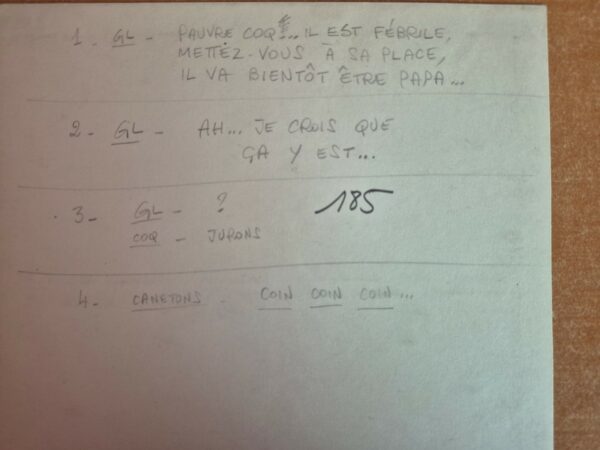 1. GL - PAUVRE COQ!... IL EST FÉBRILE,
METTEZ-VOUS À SA PLACE,
IL VA BIENTÔT ÊTRE PAPA...
2- GL - AH... JE CROIS QUE
ÇA Y EST...
3- GL - ?
185
COQ - JURONS
4- CANETONS - COIN COIN COIN...